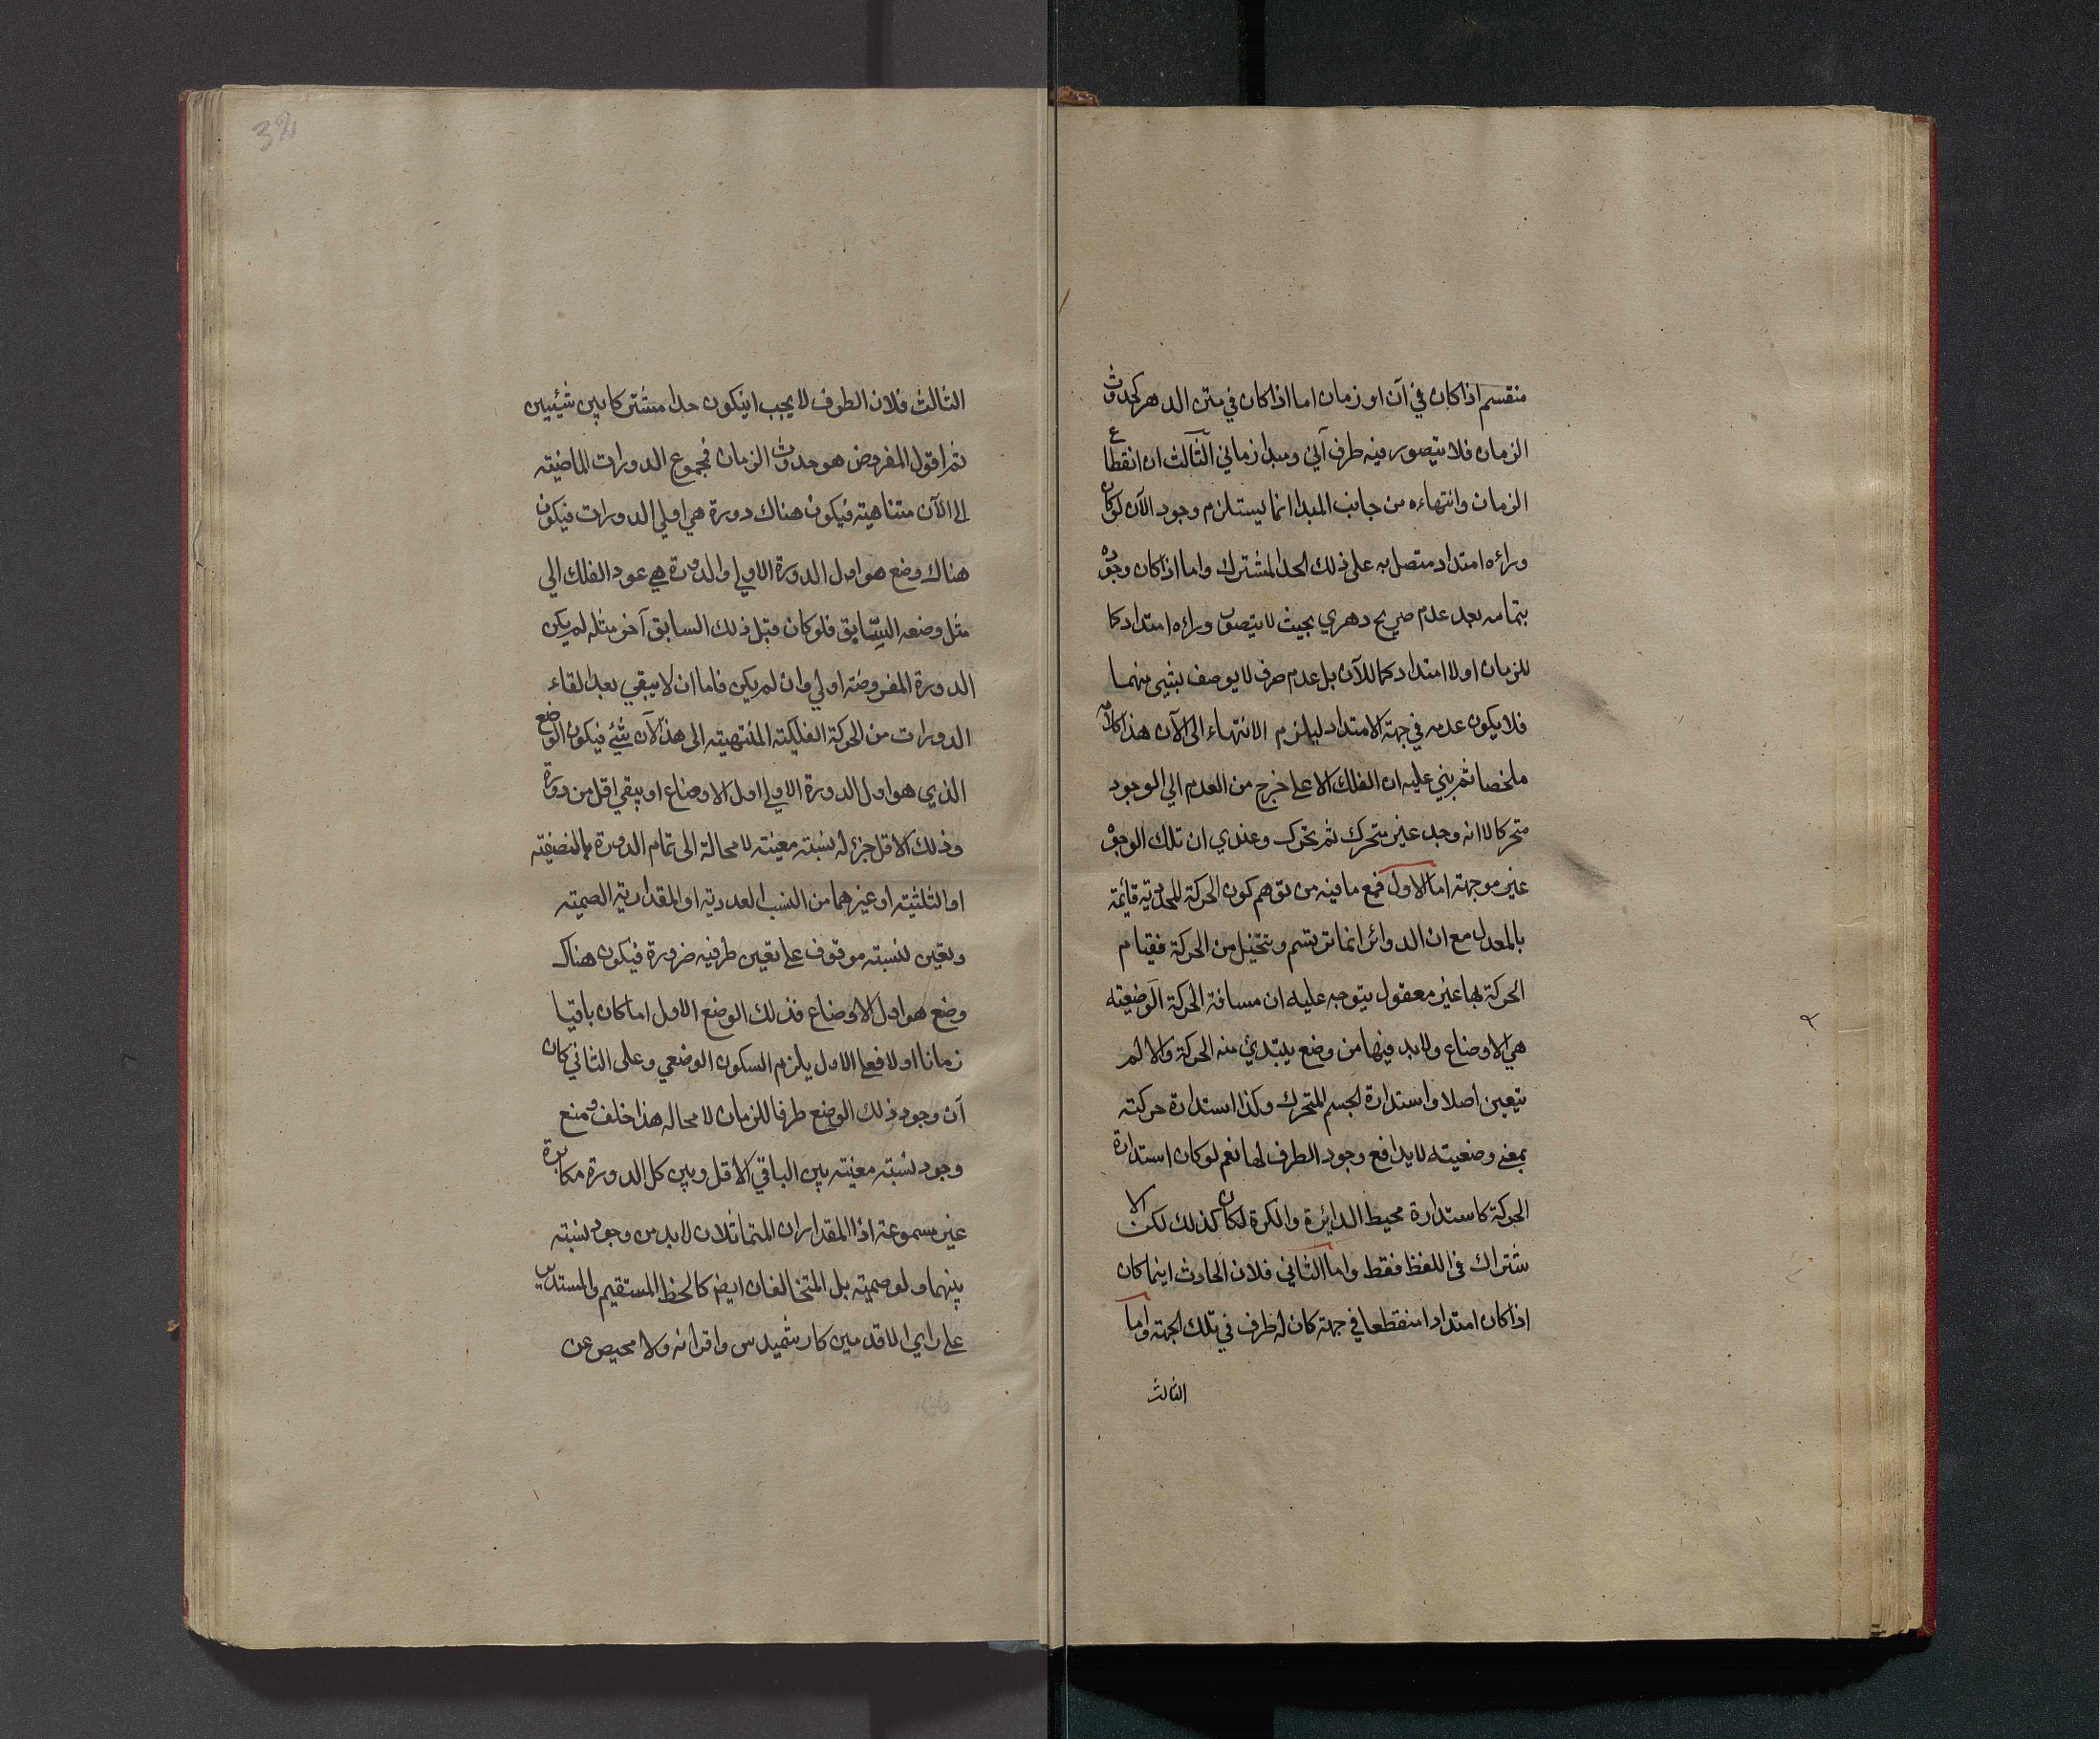 منقسم اذا كان في آن او زمان اما اذا كان في متن الدهر كحدوث
الزمان فلا يتصور فيه طرف آني ومبدا زماني الثالث ان انقطاع
الزمان وانتهاءه من جانب المبدا انما يستلزم وجود الآن لو كان
وراءه امتداد متصل به على ذلك الحد المشترك واما اذا كان وجوده
بتمامه بعد عدم صريح دهري بحيث لا يتصور وراءه امتداد كما
للزمان او لا امتداد كما للآن بل عدم صرف لا يوصف بشيء منهما
فلا يكون عدمه في جهة الامتداد ليلزم الانتهاء الى الآن هذا كلامه
ملخصا ثم بنى عليه ان الفلك الاعلى خرج من العدم الي الوجود
متحركا لا انه وجد غير متحرك ثم تحرك وعندي ان تلك الوجوه
غير موجهة اما الاول فمع ما فيه من توهم كون الحركة المحدوية قائمة
بالمعدل مع ان الدوائر انما ترتسم وتتخيل من الحركة فقيام
الحركة بها غير معقول يتوجه عليه ان مسافة الحركة الوضعية
هي الاوضاع ولا بد فيها من وضع يبتدئ منه الحركة والا لم
يتعين اصلا واستدارة الجسم المتحرك وكذا استدارة حركته
بمعنى وضعيته لا يدافع وجود الطرف لها نعم لو كان استدارة
الحركة كاستدارة محيط الدائرة والكرة لكان كذلك لكن الا
شتراك في اللفظ فقط واما الثاني فلان الحادث اينما كان
اذا كان امتدادا منقطعا في جهة كان له طرف في تلك الجهة واما
الثالث
32
الثالث فلان الطرف لا يجب ان يكون حدا مشتركا بين شيئين
ثم اقول المفروض هو حدوث الزمان فمجموع الدورات الماضية
الى الآن متناهية فيكون هناك دورة هي اولى الدورات فيكون
هناك وضع هو اول الدورة الاولى والدورة هي عود الفلك الي
مثل وضعه السابق فلو كان قبل ذلك السابق آخر مثله لم يكن
الدورة المفروضة اولي وان لم يكن فاما ان لا يبقي بعد القاء
الدورات من الحركة الفلكية المنتهية الى هذا الآن شيء فيكون الوضع
الذي هو اول الدورة الاولى اول الاوضاع او يبقي اقل من دورة
وذلك الاقل جزء له نسبة معينة لا محالة الى تمام الدورة بالنصفية
او الثلثية او غيرهما من النسب العددية او المقدارية الصمية
وتعين النسبة موقوف على تعين طرفيه ضرورة فيكون هناك
وضع هو اول الاوضاع فذلك الوضع الاول اما كان باقيا
زمانا او لا فعلى الاول يلزم السكون الوضعي وعلى الثاني كان
آن وجود ذلك الوضع طرفا للزمان لا محاله هذا خلف ومنع
وجود نسبة معينة بين الباقي الاقل وبين كل الدورة مكابرة
غير مسموعة اذ المقداران المتماثلان لا بد من وجود نسبة
بينهما ولو صمية بل المتخالفان ايضا كالخط المستقيم والمستدير
على راي الاقدمين كارشميدس واقرانه ولا محيص عن